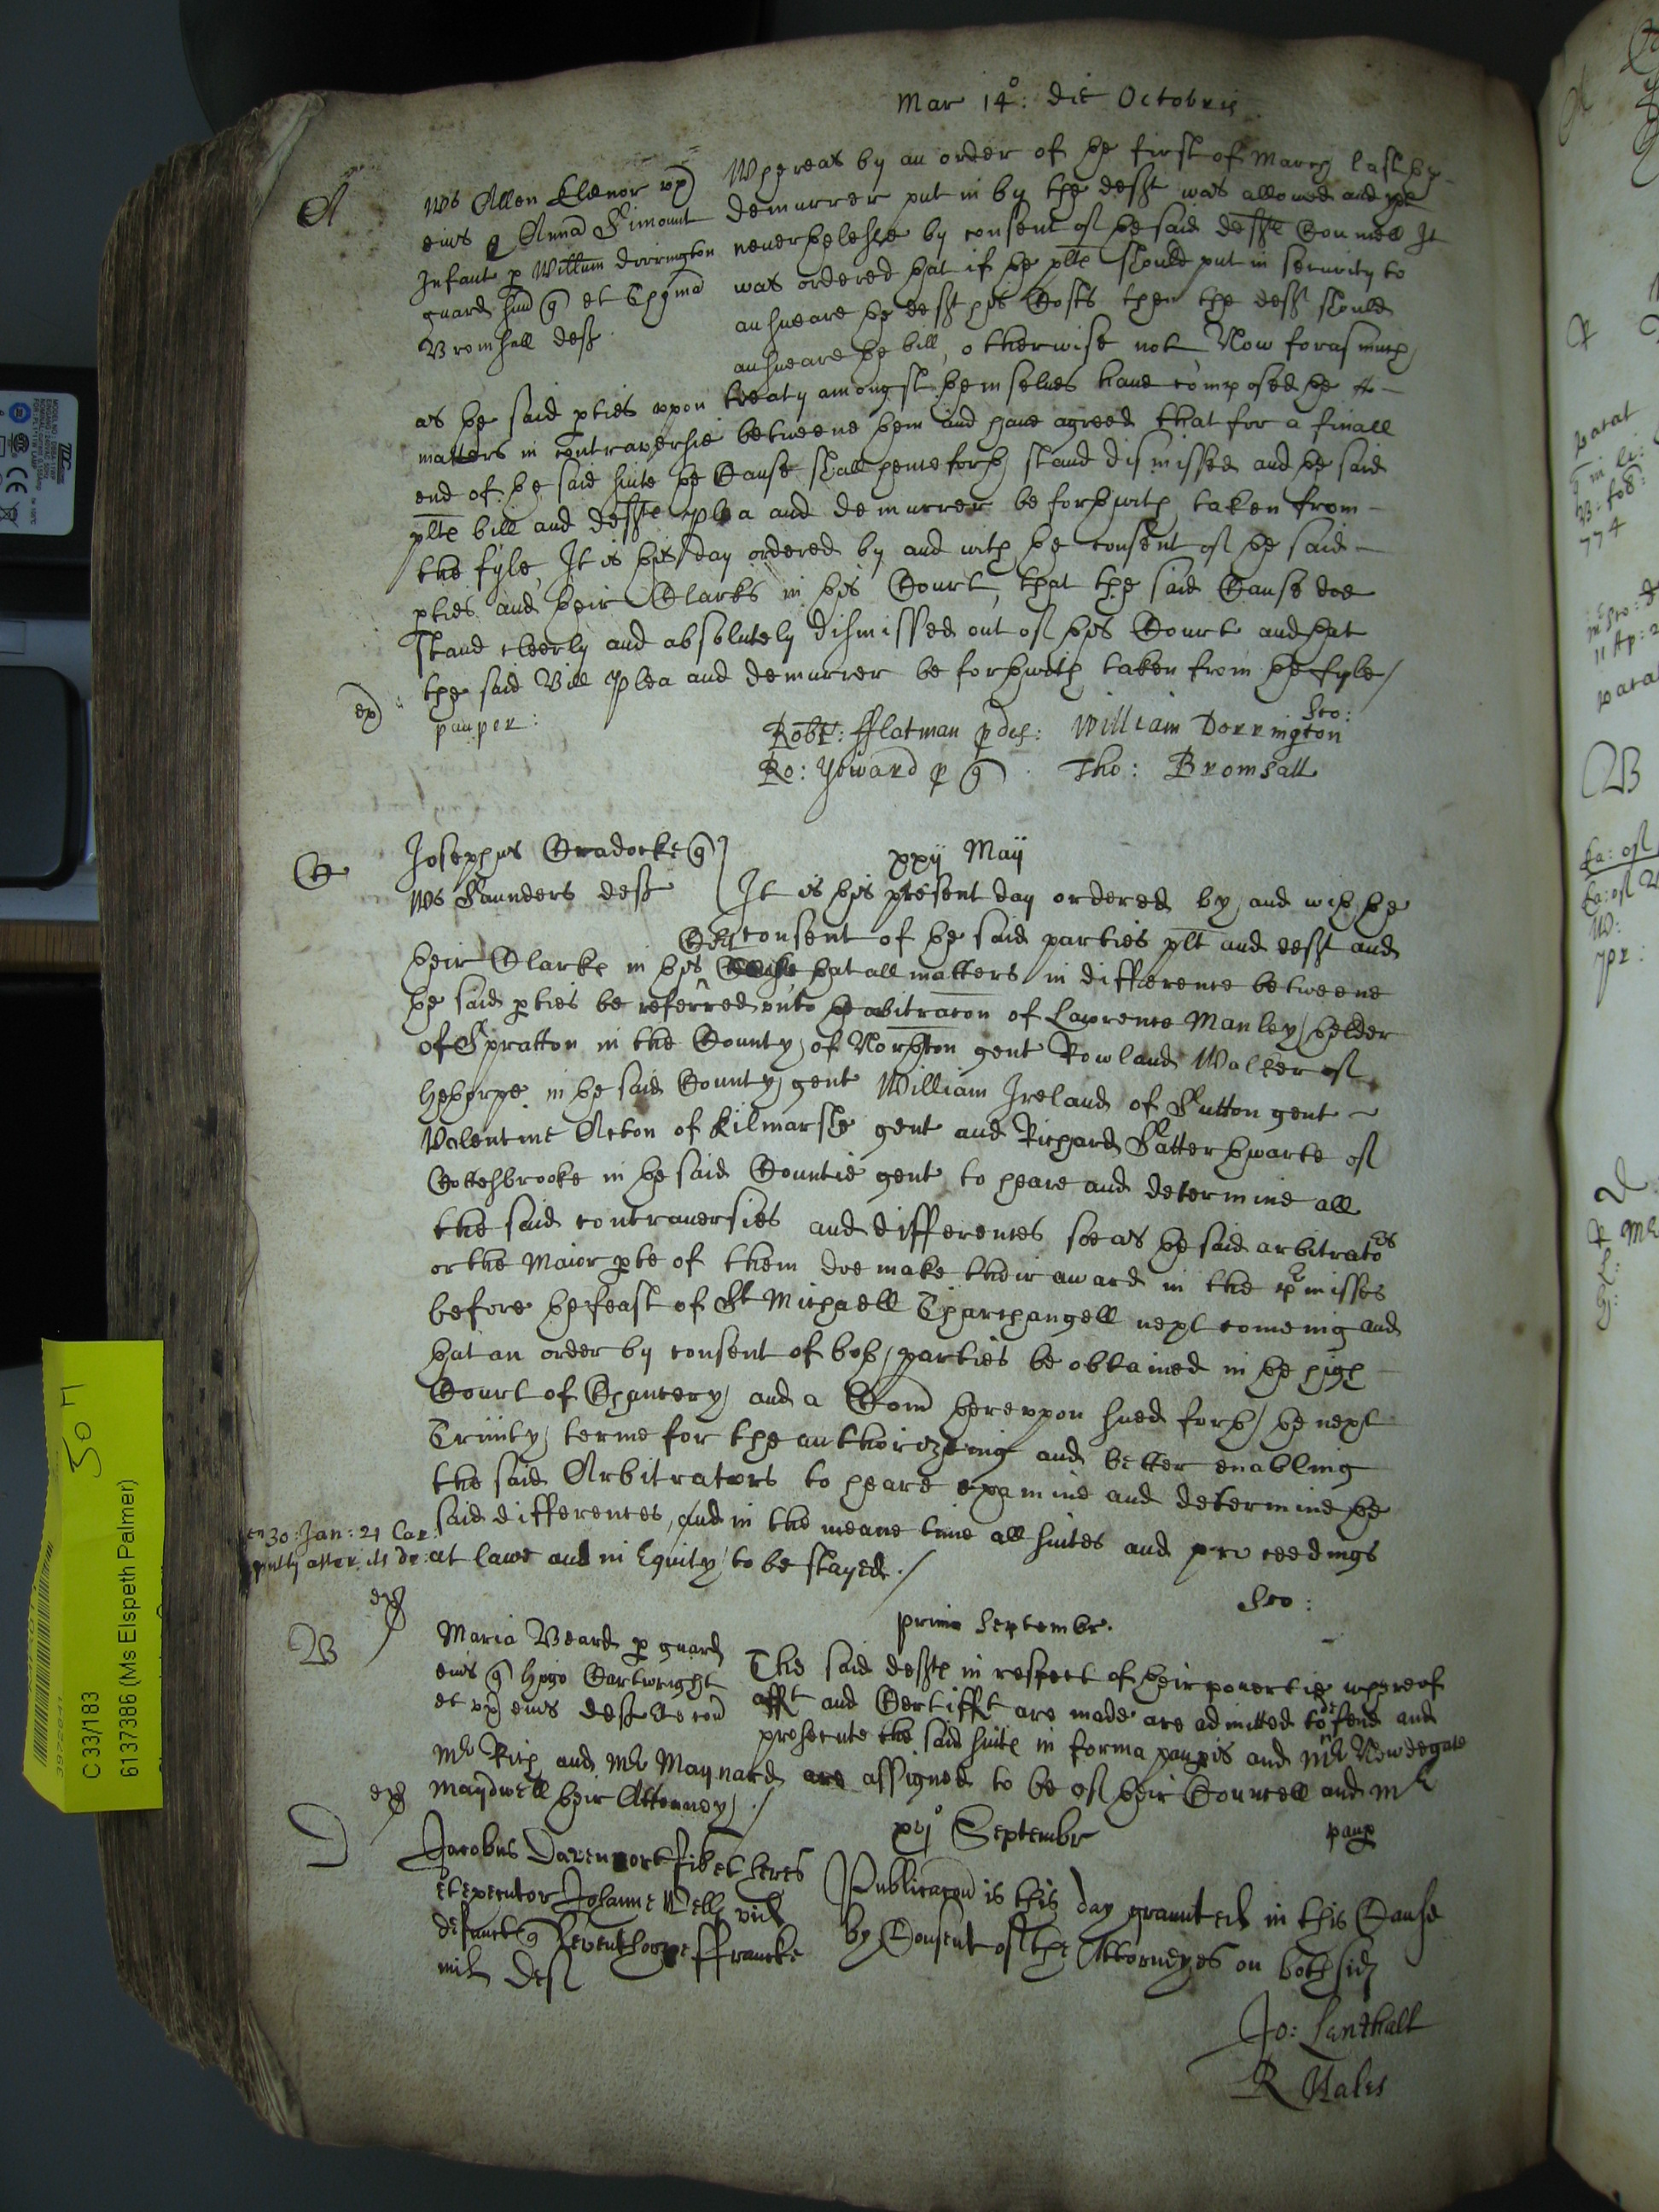 Mar 14°: die Octobris
A
Ws Allen Elienor vx)
eius & Anna Simount
Infant p Willum dorrington
guard suu q et Thoma
Bromsall deft
Whereas by an order of the first of March last the
demurrer put in by the deft was allowed and yet
neuerthelesse by consent of the said defts Counsell It
was ordered that if the plts should put in security to
answeare the deft his Costs then the deft should
answeare the bill, otherwise not Now forasmuch
as the said pties vpon treaty amongst themselues haue composed the
matters in controuersie betweene them and haue agreed that for a finall
end of the said suite the Cause shall henceforth stand dismissed and the said
plts bill and defts plea and demurrer be forthwith taken from
the fyle, It is this day ordered by and with the consent of the said
pties and their Clarks in this Court, that the said Cause doe
stand cleerly and absolutely dismissed out of this Court and that
the said Bill Plea and demurrer be forthwith taken from the fyle/
ex)
pauper:
Robt: fflatman p def: William Dorrington
Ro: Yeward p q Tho: Bromsall
C
Josephus Cradocke q
Ws Saunders deft
xxij Maij
It is this present day ordered by and with the
consent of the said parties plt and deft and
their Clarke in this Court that all matters in difference betweene
the said pties be referred vnto the abitracon of Lawrence Manley thelder
of Spratton in the County of Northton gent Rowland Walker of
Hothorpe in the said County gent William Ireland of Sutton gent
Valentine Acton of Kilmarshe gent and Richard Satterthwarte of
Cottesbrooke in the said Countie gent to heare and determine all
the said controuersies and differences soe as the said arbitrators
or the Maior pte of them doe make their award in the pmisses
before the feast of St Michaell Tharchangell next comeing and
that an order by consent of both parties be obtained in the high
Court of Chancery and a Com) therevpon sued forth the next
Trinity terme for the authorizeing and better enabling
the said Arbitrators to heare examine and determine the
said differences, and in the meane time all suites and proceedings
at lawe and in Equity to be stayed./
30: Jan: 21 Car:
B
Maria Beard p guard
eius q Hugo Cartwright
et vx) eius deft
primo Septembr.
The said defts in respect of their pouertie whereof
afft and Certifft are made are admitted to defend and
prosecute the said suite in forma paupis and Mr Newdegate
Mr Rich and Mr Maynard are assigned to be of their Councell and Mr
Maydwell their Attorney/./
paup
D
Jacobus Davenport fil et heres
et executor Johanne Dell vid
defunct q Leventhorpe ffrancke
mil def
xvj° Septembr
Publicacon is this day graunted in this Cause
by Consent of the Attorneyes on both sid
Jo: Lenthall
R Hales
C 33/183
6137386 (Ms Elspeth Palmer)